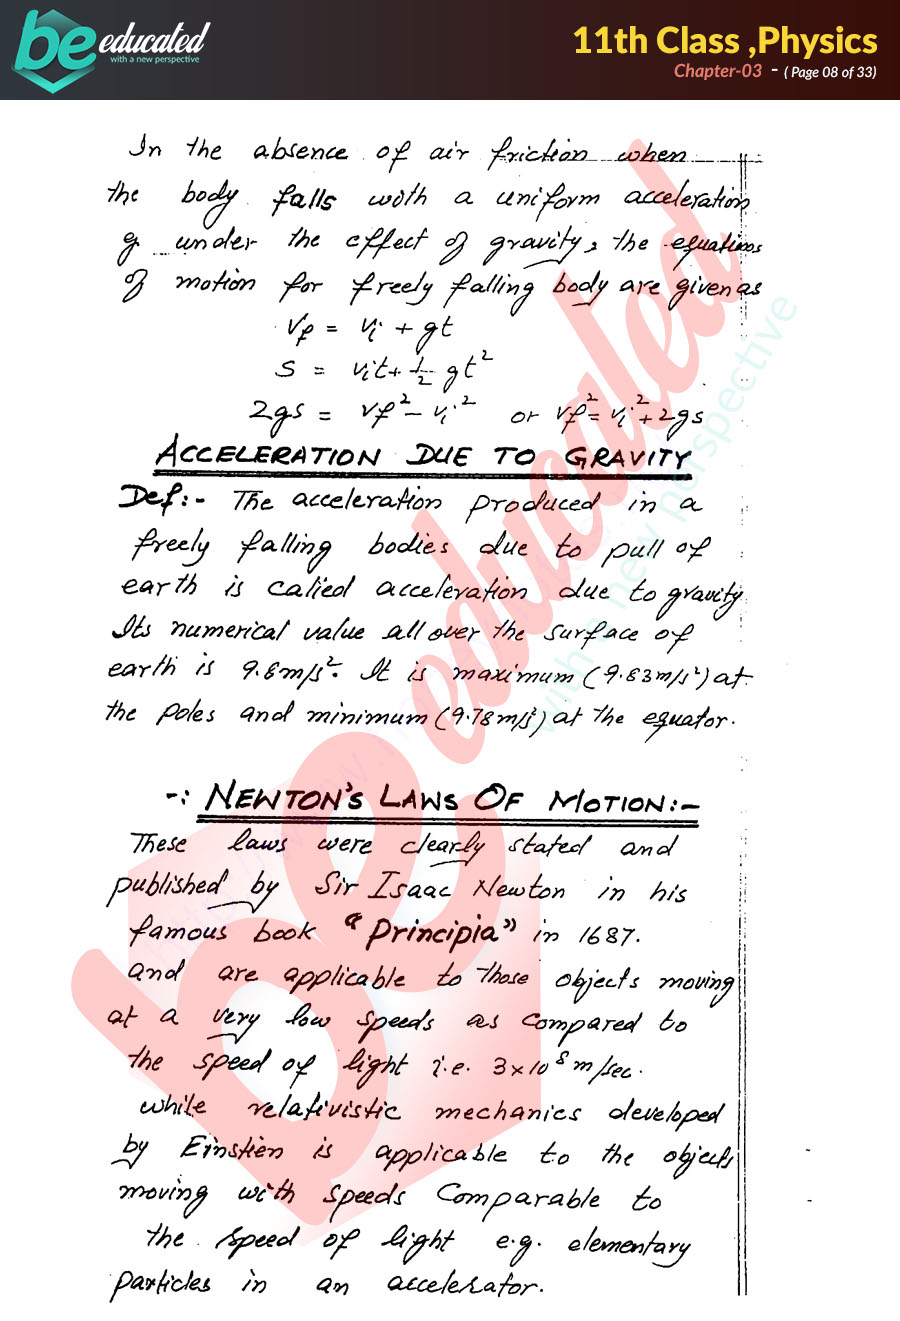 be educated
with a new perspective
11th Class ,Physics
Chapter-03 - ( Page 08 of 33)
In the absence of air friction when
the body falls with a uniform acceleration
g under the effect of gravity, the equations
of motion for freely falling body are given as
Vf = Vi + gt
S = Vit + 1/2 gt²
2gs = Vf² - Vi² or Vf² = Vi² + 2gs
ACCELERATION DUE TO GRAVITY
Def:- The acceleration produced in a
freely falling bodies due to pull of
earth is called acceleration due to gravity
Its numerical value all over the surface of
earth is 9.8m/s². It is maximum (9.83m/s²) at
the poles and minimum (9.78m/s²) at the equator.
-: NEWTON'S LAWS OF MOTION:-
These laws were clearly stated and
published by Sir Isaac Newton in his
famous book "Principia" in 1687.
and are applicable to those objects moving
at a very low speeds as compared to
the speed of light i.e. 3×10⁸ m/sec.
while relativistic mechanics developed
by Einstien is applicable to the objects
moving with speeds Comparable to
the speed of light e.g. elementary
particles in an accelerator.
be educated
with a new perspective